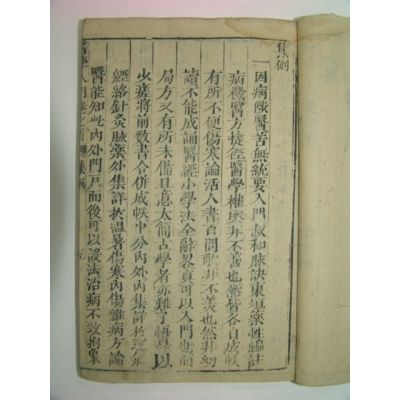 集例
一因病陔醫苦無統要入門叔和脉訣東垣藥性編註
病機醫方捷徑醫學權輿非不善也然皆各自成帙
有所不便傷寒論活人書百問歌非不美也然非幼
讀不能成誦醫經小學法全辭畧真可以入門也而
局方又有所未備且意太簡古學者亦難了悟是以
少瘥將前數書合併成帙中分內外內集詳於運氣
經絡針灸脉藥外集詳於溫暑傷寒內傷雜病方論
醫能知此內外門戶而後可以設法治病不致拘象
醫學入門卷之首 集例